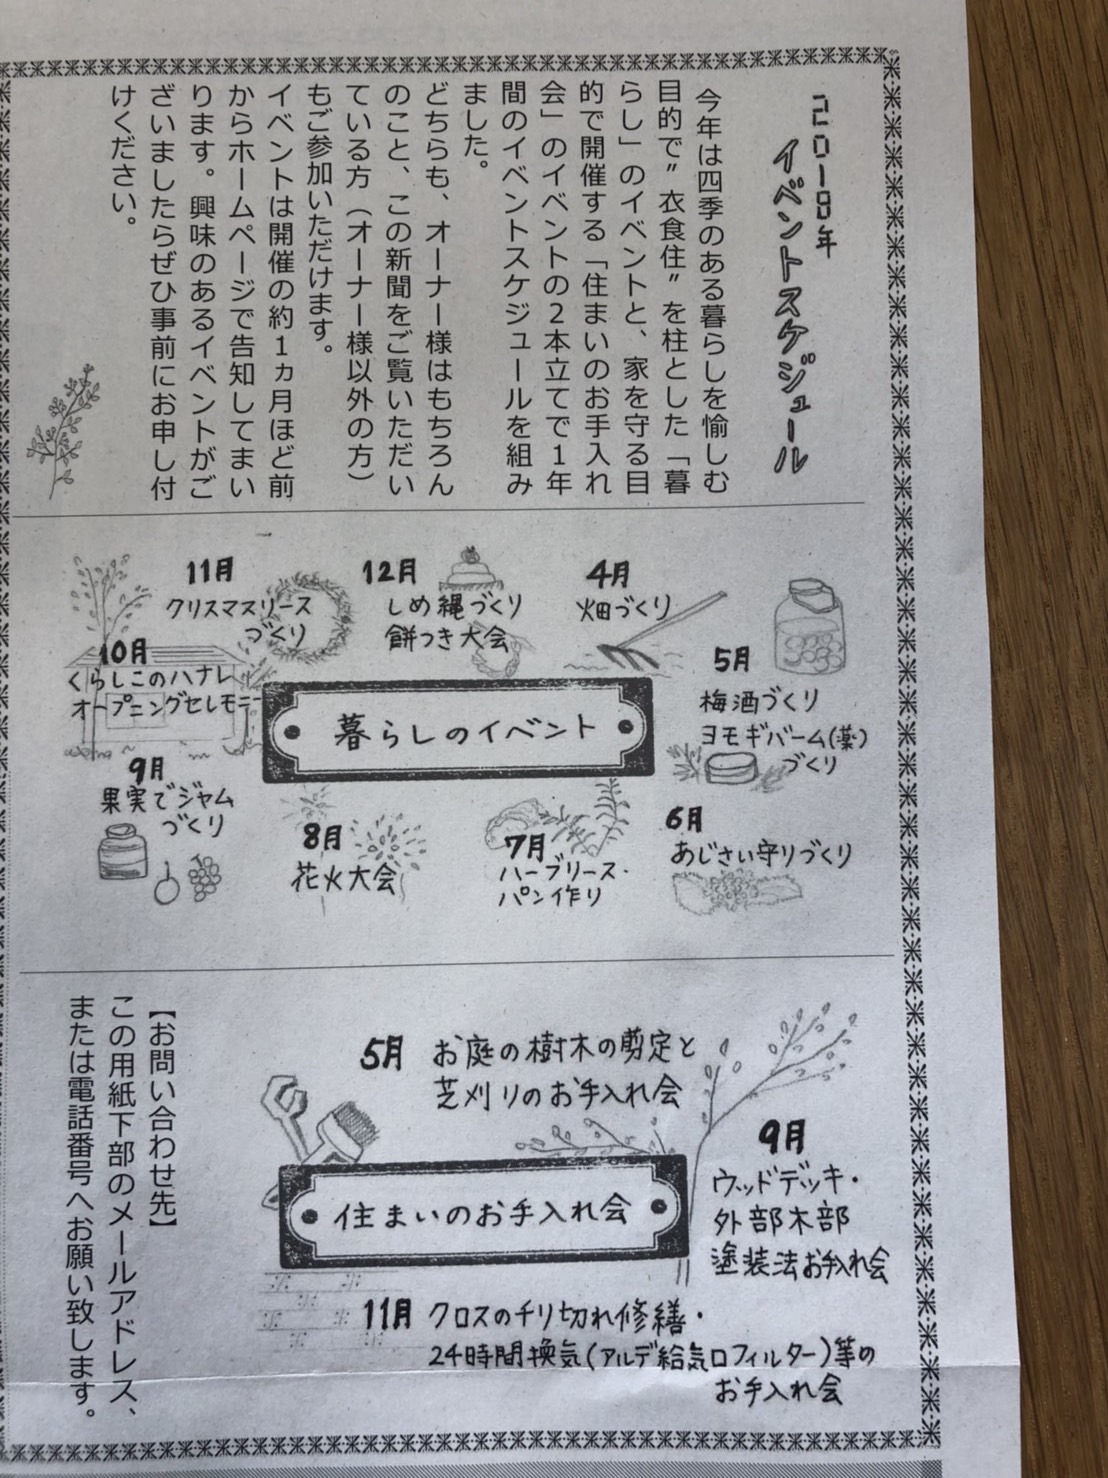 2018年
イベントスケジュール
今年は四季のある暮らしを愉しむ
目的で〝衣食住〟を柱とした「暮
らし」のイベントと、家を守る目
的で開催する「住まいのお手入れ
会」のイベントの2本立てで1年
間のイベントスケジュールを組み
ました。
どちらも、オーナー様はもちろん
のこと、この新聞をご覧いただい
ている方（オーナー様以外の方）
もご参加いただけます。
イベントは開催の約1ヵ月ほど前
からホームページで告知してまい
ります。興味のあるイベントがご
ざいましたらぜひ事前にお申し付
けください。
暮らしのイベント
4月
畑づくり
5月
梅酒づくり
ヨモギバーム(薬)
づくり
6月
あじさい守りづくり
7月
ハーブリース・
パン作り
8月
花火大会
9月
果実でジャム
づくり
10月
くらしこのハナレ
オープニングセレモニー
11月
クリスマスリース
づくり
12月
しめ縄づくり
餅つき大会
住まいのお手入れ会
5月 お庭の樹木の剪定と
芝刈りのお手入れ会
9月
ウッドデッキ・
外部木部
塗装法お手入れ会
11月 クロスのチリ切れ修繕・
24時間換気(アルデ給気口フィルター)等の
お手入れ会
【お問い合わせ先】
この用紙下部のメールアドレス、
または電話番号へお願い致します。